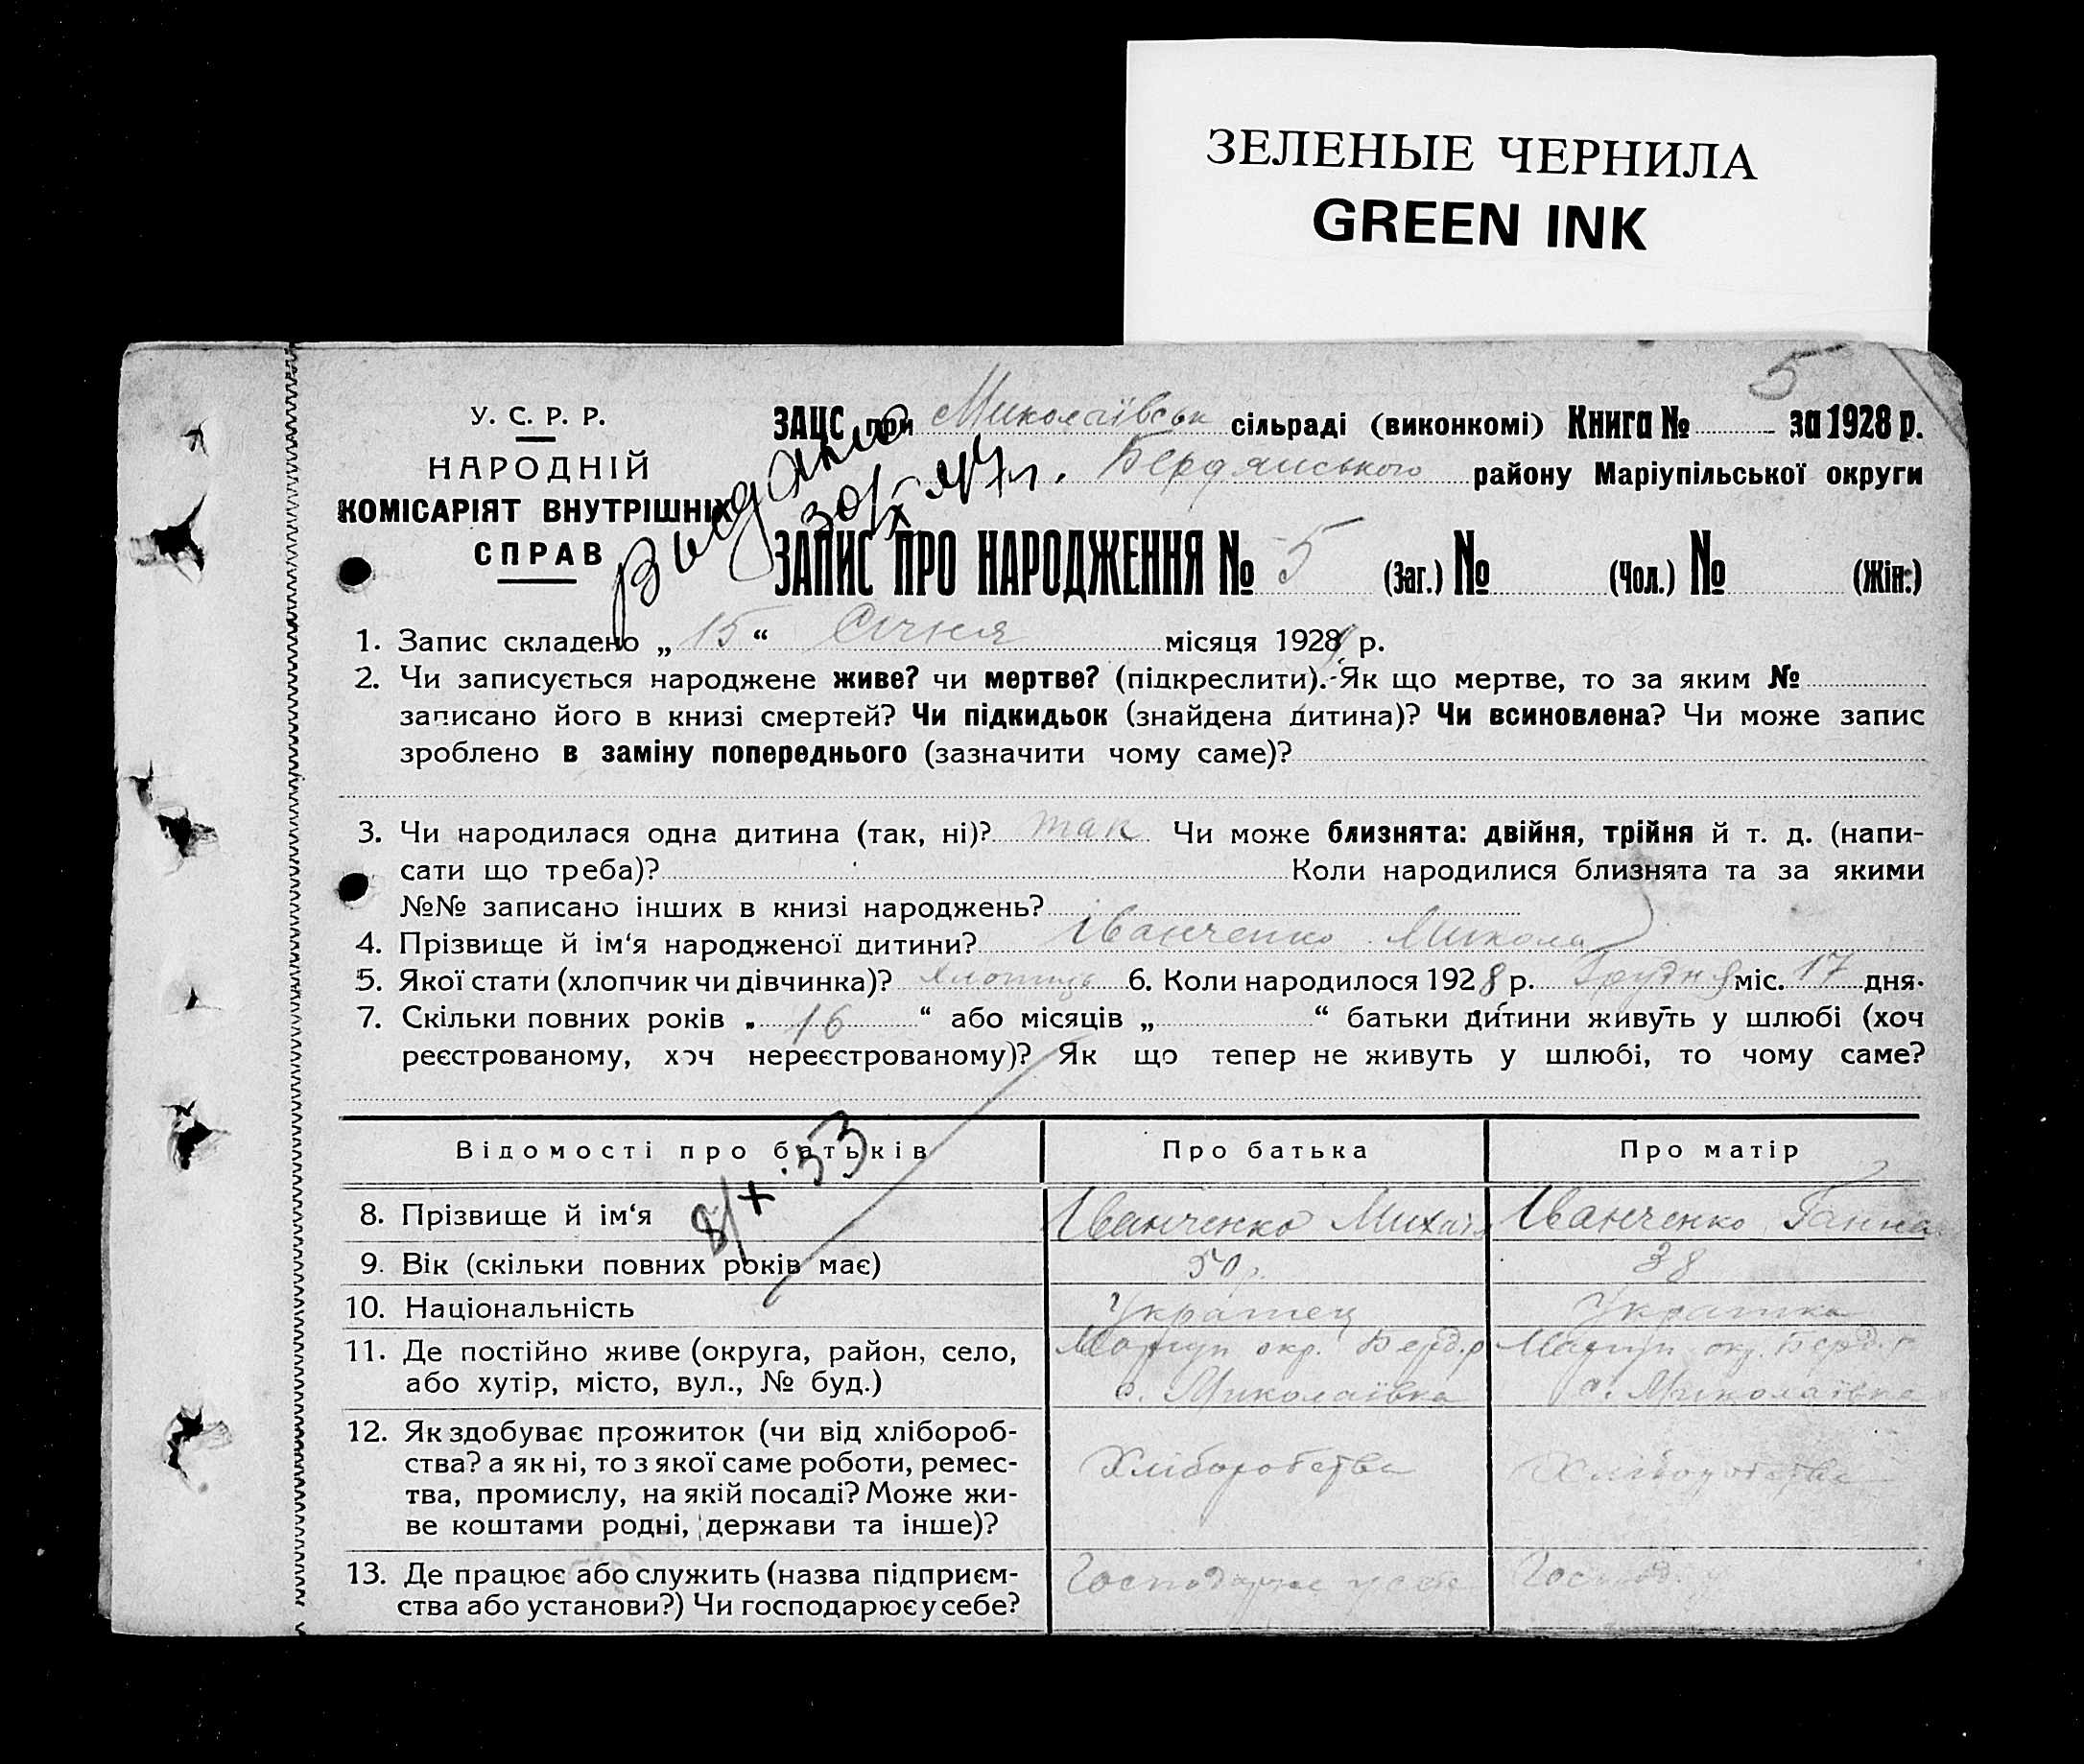 ЗЕЛЕНЫЕ ЧЕРНИЛА
GREEN INK
5
У. С. Р. Р.
НАРОДНІЙ
КОМІСАРІЯТ ВНУТРІШНІХ
СПРАВ
ЗАЦС при Миколаївськ сільраді (виконкомі) Книга № за 1928 р.
Бердянського району Маріупільської округи
Выдано
30/X 47 г.
ЗАПИС ПРО НАРОДЖЕННЯ № 5 (Заг.) № (Чол.) № (Жін.)
1. Запис складено „ 15 “ Січня місяця 1929 р.
2. Чи записується народжене живе? чи мертве? (підкреслити).-Як що мертве, то за яким №
записано його в книзі смертей? Чи підкидьок (знайдена дитина)? Чи всиновлена? Чи може запис
зроблено в заміну попереднього (зазначити чому саме)?
3. Чи народилася одна дитина (так, ні)? так Чи може близнята: двійня, трійня й т. д. (напи-
сати що треба)? Коли народилися близнята та за якими
№№ записано інших в книзі народжень?
4. Прізвище й ім‘я народженої дитини? Іванченко Микола
5. Якої стати (хлопчик чи дівчинка)? хлопець 6. Коли народилося 1928 р. Грудня міс. 17 дня.
7. Скільки повних років „ 16 “ або місяців „ “ батьки дитини живуть у шлюбі (хоч
реєстрованому, хоч нереєстрованому)? Як що тепер не живуть у шлюбі, то чому саме?
Відомості про батьків Про батька Про матір
8/X 53
8. Прізвище й ім‘я Іванченко Михаїл Іванченко Ганна
9. Вік (скільки повних років має) 50 38
10. Національність Українец Українка
11. Де постійно живе (округа, район, село, Маріуп окр. Берд. р Маріуп окр. Берд. р
або хутір, місто, вул., № буд.) с. Миколаївка с. Миколаївка
12. Як здобуває прожиток (чи від хлібороб-
ства? а як ні, то з якої саме роботи, ремес- Хліборобства Хліборобства
тва, промислу, на якій посаді? Може жи-
ве коштами родні, держави та інше)?
13. Де працює або служить (назва підприєм- Господарює у себе Господ.
ства або установи?) Чи господарює у себе?